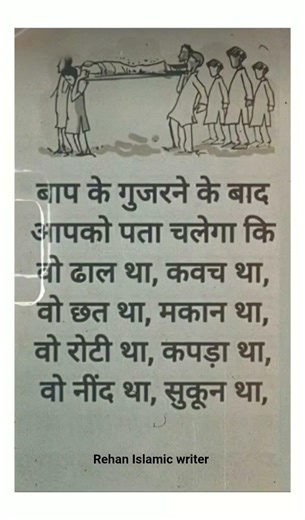 बाप के गुजरने के बाद
आपको पता चलेगा कि
वो ढाल था, कवच था,
वो छत था, मकान था,
वो रोटी था, कपड़ा था,
वो नींद था, सुकून था,
Rehan Islamic writer